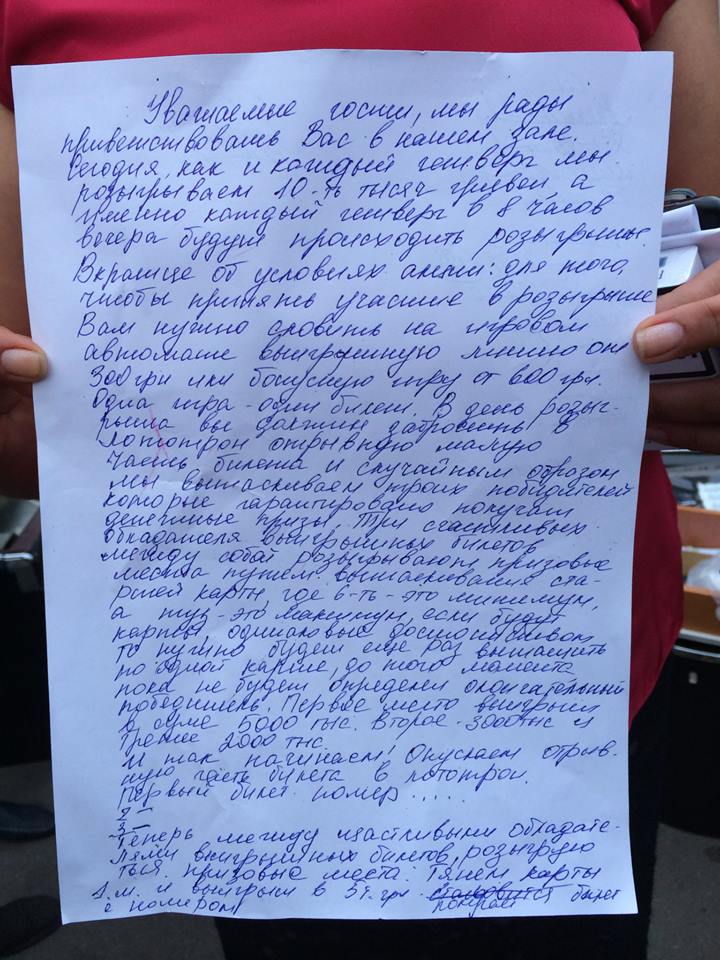 Уважаемые гости, мы рады
приветствовать Вас в нашем зале.
Сегодня, как и каждый четверг мы
розыгрываем 10-ть тысяч гривен, а
именно каждый четверг в 8 часов
вечера будут происходить розыгрыши.
Вкратце об условиях акции: для того,
чтобы принять участие в розыгрыше
Вам нужно словить на игровом
автомате выигрышную линию от
300 грн или бонусную игру от 600 грн.
Одна игра - один билет. В день розыг-
рыша вы должны забросить в
лототрон отрывную малую
часть билета и случайным образом
мы вытаскиваем троих победителей
которые гарантировано получат
денежные призы. Три счастливых
обладателя выигрышных билетов
между собой розыгрывают призовые
места путем вытаскивания ста-
ршей карты, где 6-ть - это минимум,
а туз - это максимум, если будут
карты, одинаковые достоинством
то нужно будет еще раз вытащить
по одной карте, до того момента
пока не будет определен окончательный
победитель. Первое место выигрыш
в сумме 5000 тыс. Второе - 3000 тыс и
Третье 2000 тыс.
И так начинаем! Опускаем отрыв-
ную часть билета в лототрон.
Первый билет номер .....
2 —
3 —
Теперь между щастливыми обладате-
лями выигрышных билетов, розыграю
ться призовые места. Тянем карты
1 м. и выигрыш в 5т. грн становится билет
получает
с номером